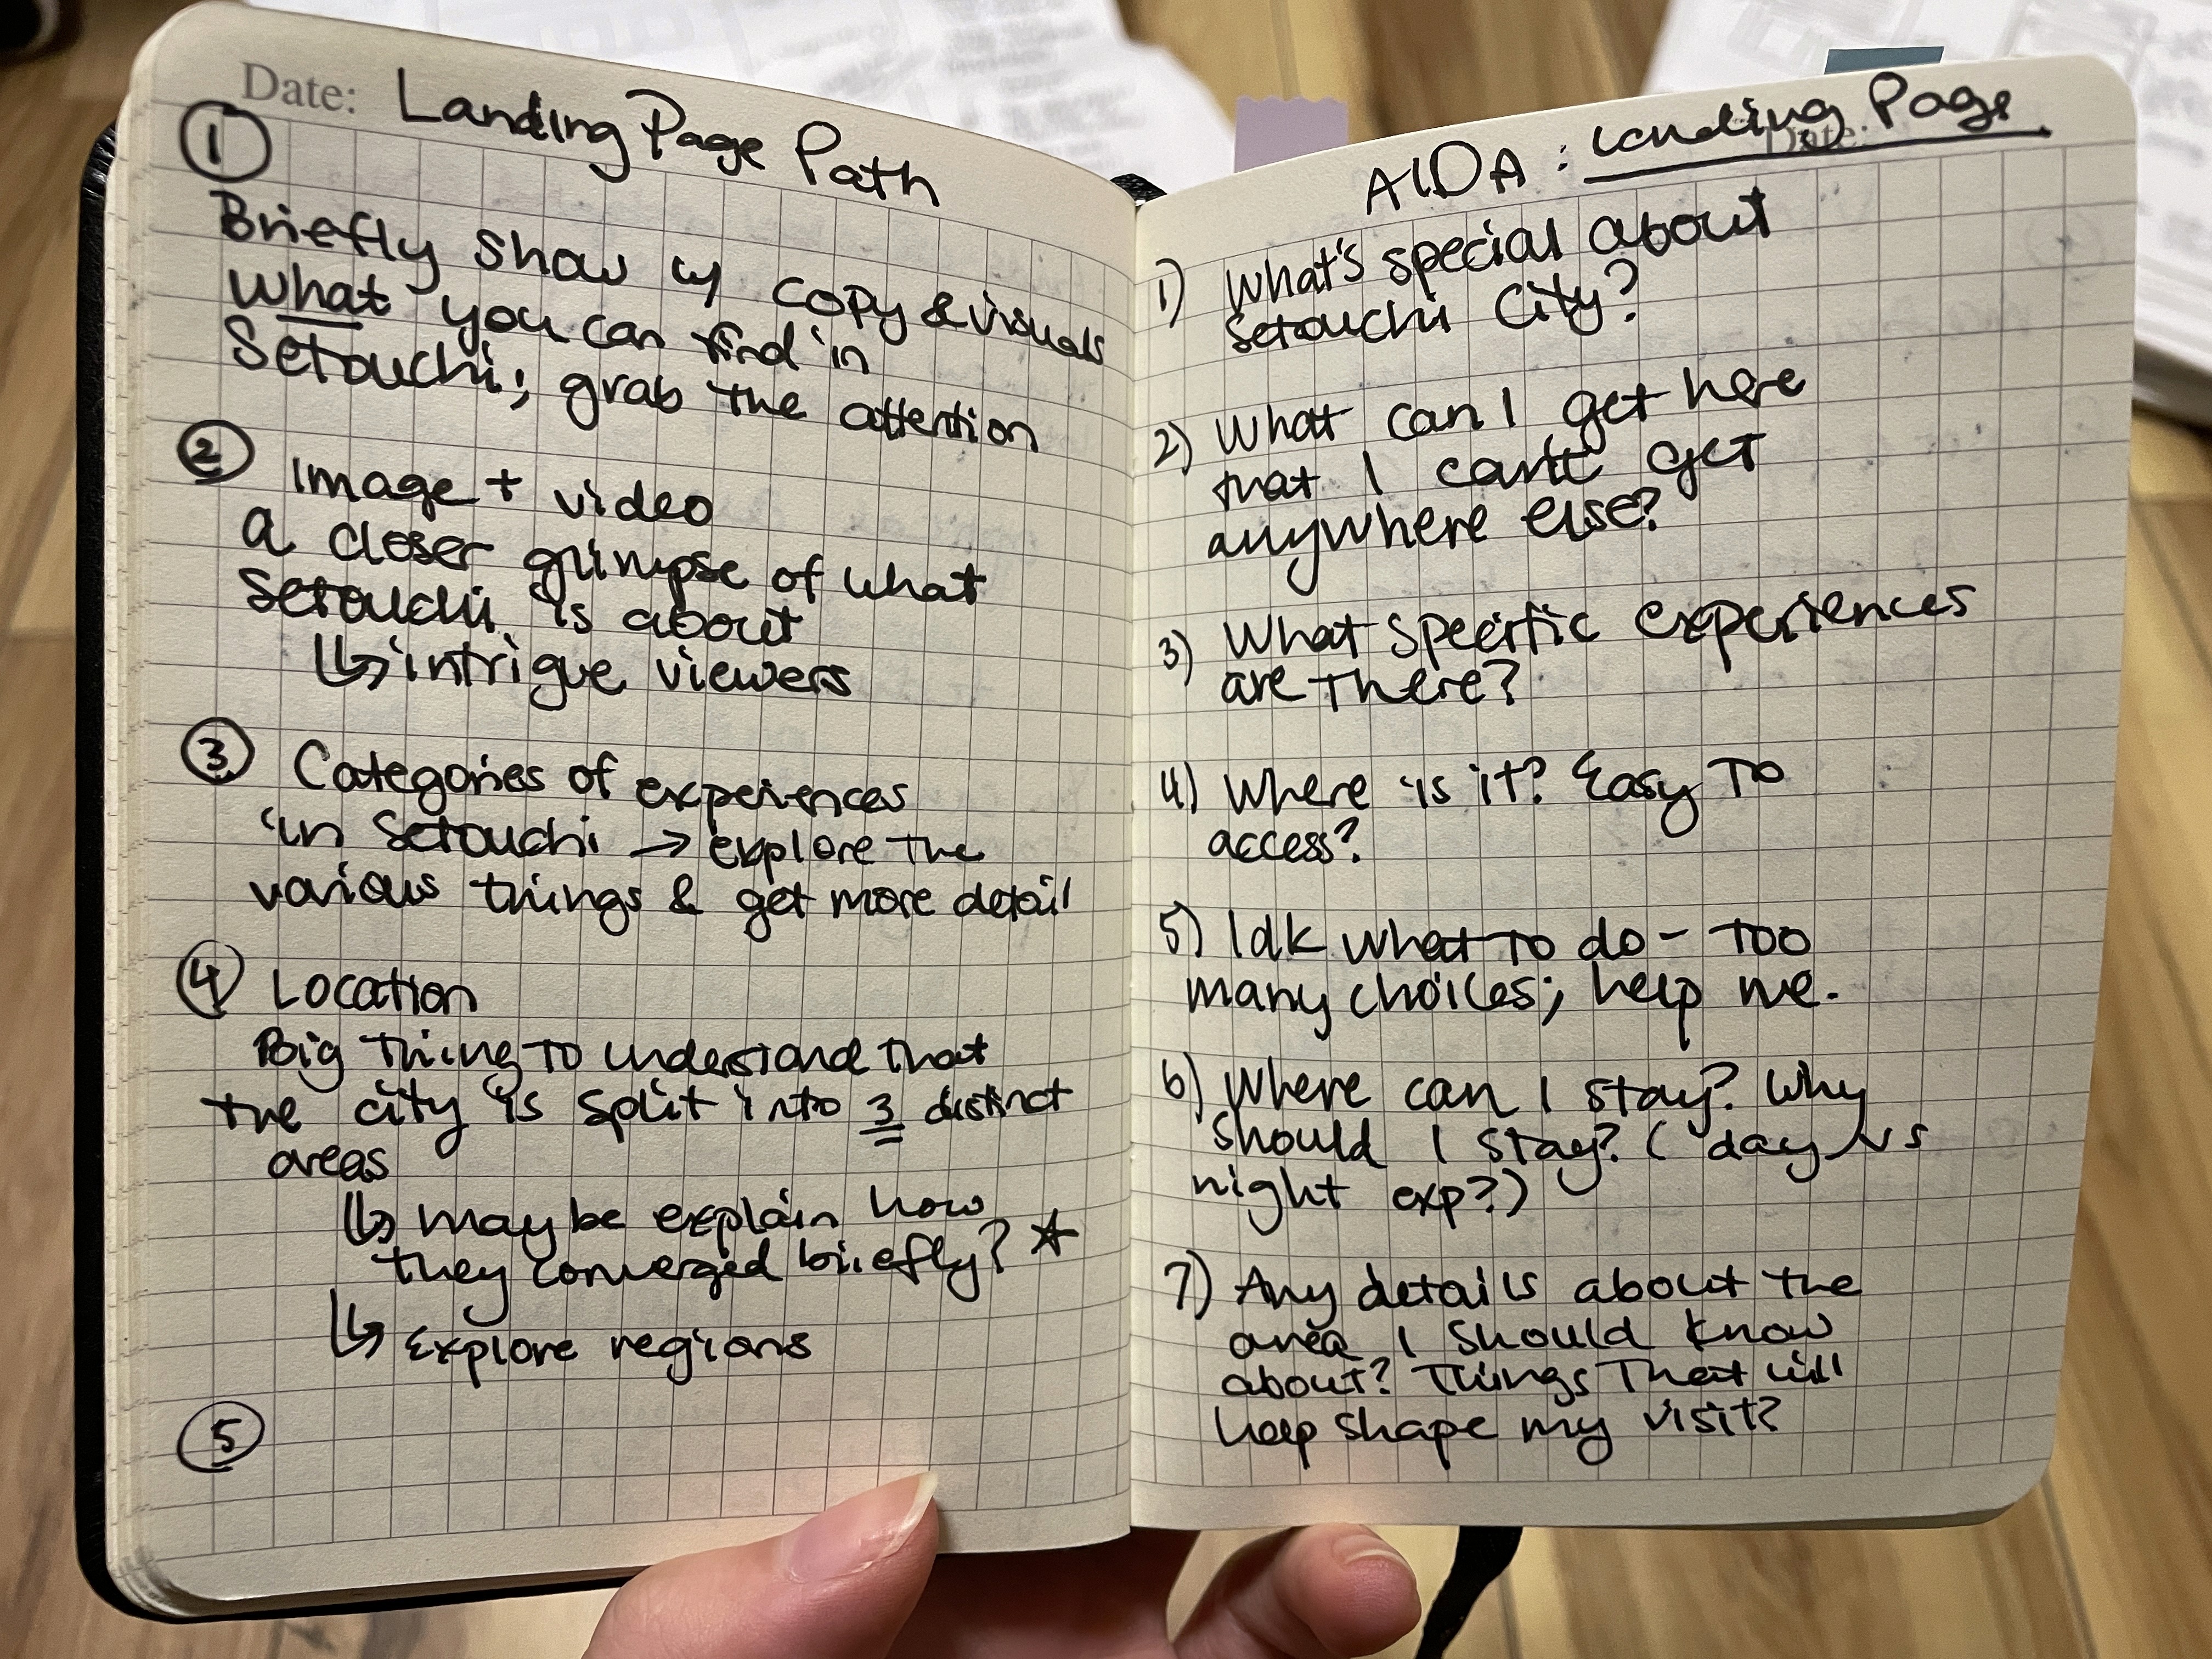 Date: Landing Page Path
①
Briefly show w/ copy & visuals
what you can find in
Setouchi; grab the attention
② Image + video
a closer glimpse of what
Setouchi is about
↳ intrigue viewers
③ Categories of experiences
in Setouchi → explore the
various things & get more detail
④ Location
Big thing to understand that
the city is split into 3 distinct
areas
↳ may be explain how
they converged briefly? ☆
↳ Explore regions
⑤
AIDA : Landing Page
Date:
1) What's special about
Setouchi City?
2) What can I get here
that I can't get
anywhere else?
3) What specific experiences
are there?
4) Where is it? Easy to
access?
5) Idk what to do - too
many choices; help me.
6) Where can I stay? Why
should I stay? (day vs
night exp?)
7) Any details about the
area I should know
about? Things that will
help shape my visit?